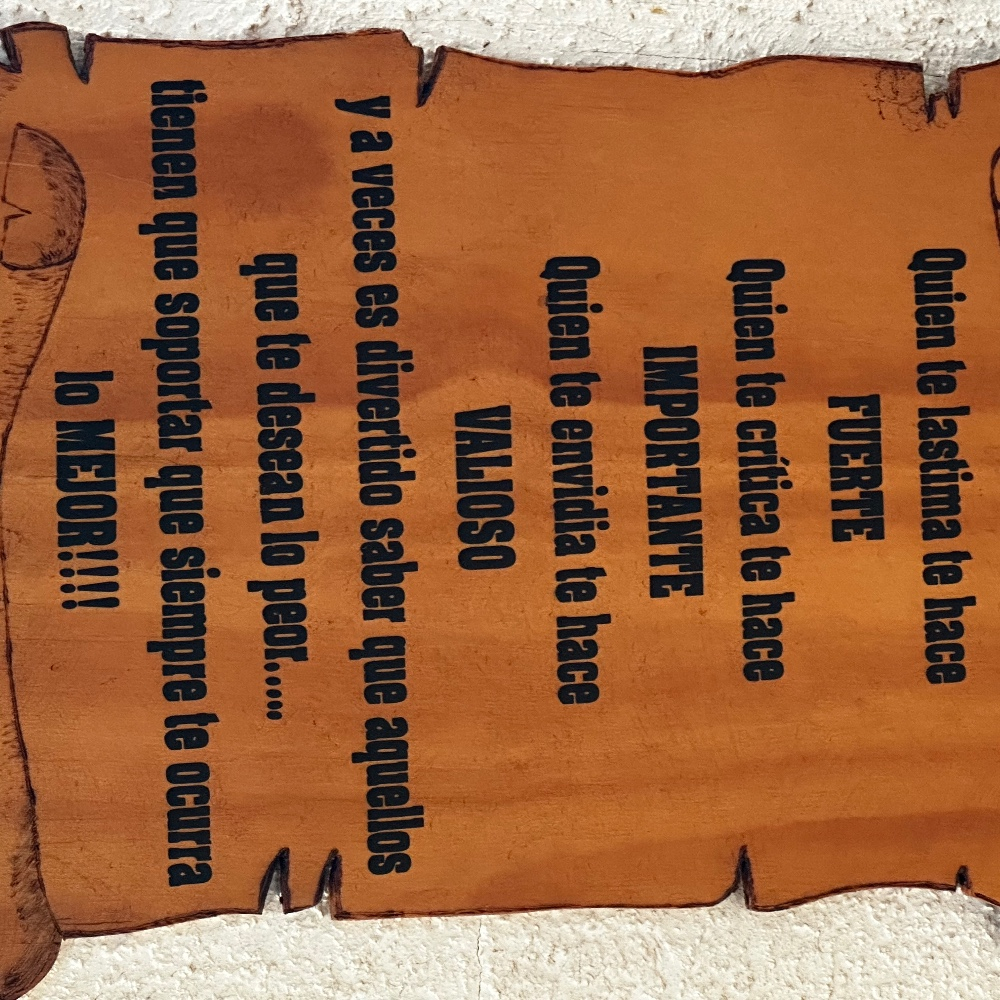 Quien te lastima te hace
FUERTE
Quien te crítica te hace
IMPORTANTE
Quien te envidia te hace
VALIOSO
y a veces es divertido saber que aquellos
que te desean lo peor.....
tienen que soportar que siempre te ocurra
lo MEJOR!!!!